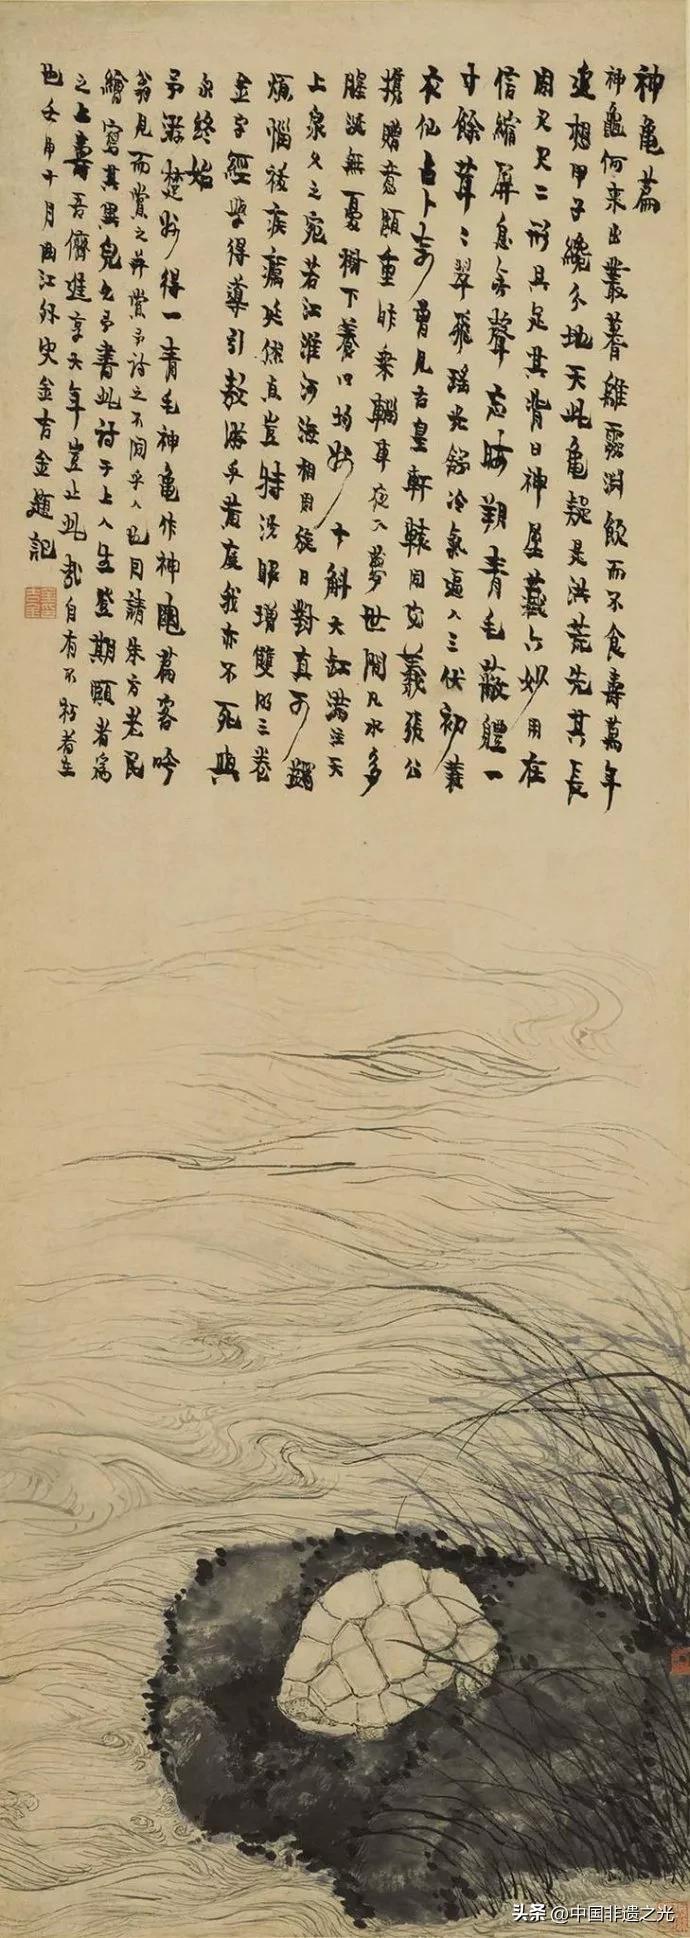 神龜篇
神龜何來出叢蓍離靈淵飲而不食壽萬年
遐想甲子纔分地天此龜疑是洪荒先其長
周尺尺二形具足其背曰神屋藏六妙用在
信縮屏息無聲忘晦朔青毛蔽體一
寸餘茸茸翠飛瑤光舒冷氣逼人三伏初蓑
衣仙占卜前曾見古皇軒轅同宓羲張公
攜贈意頗重昨乘輜車夜入夢世間凡水多
腥涎無憂樹下養口均好十斛大缸滿注天
上泉久之宛若江淮河海相周旋日對真可蠲
煩惱祛疾癘延僬直豈特洗眼增雙明三卷
金字經學得導引敖游乎黃庭我亦不死與
汝終始
予游楚好得一青毛神龜作神龜篇客吟
翁見而賞之并賞予詩之不同乎人也因請朱方老民
繪寫其異皃乞予書此詩于上人生登期頤者為
之上壽吾儕娃享大年豈止此哉自有不朽者在
也壬申十月曲江外史金吉金題記
头条 @中国非遗之光